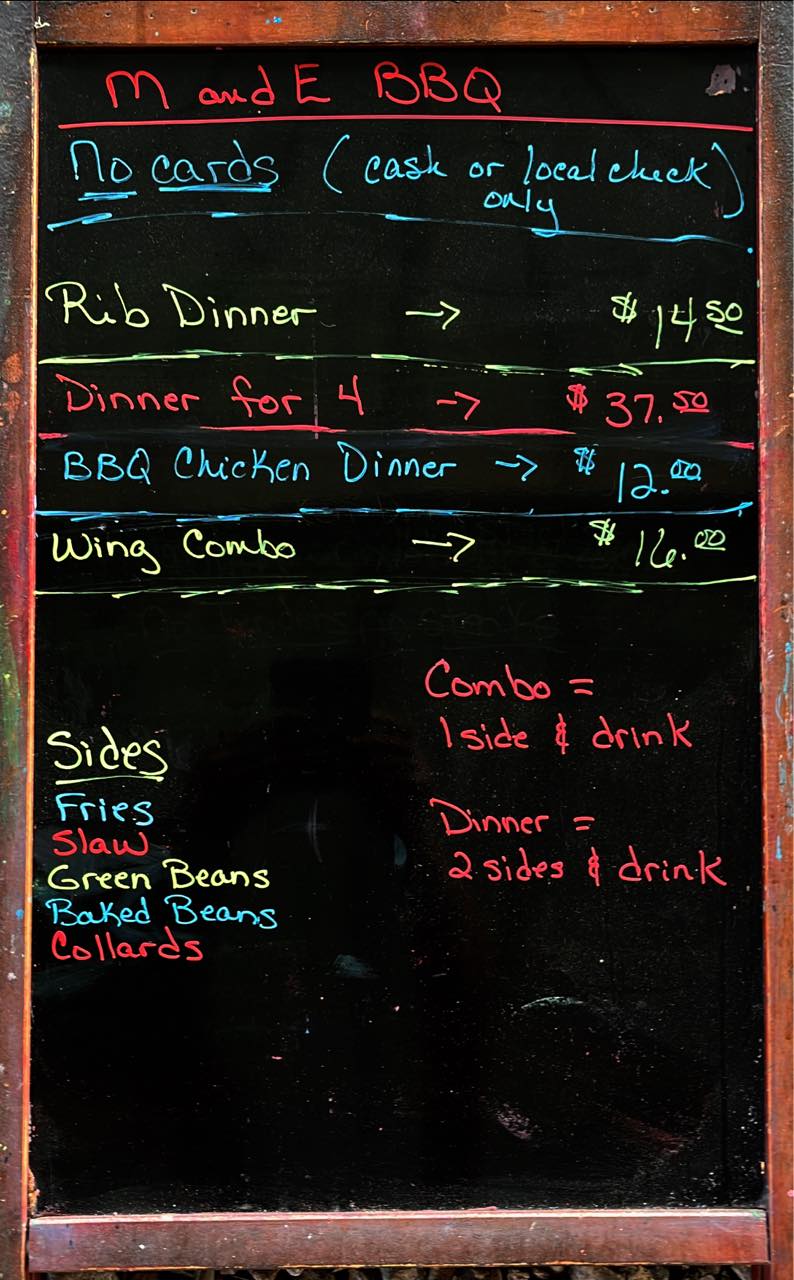 M and E BBQ
No cards (cash or local check)
only
Rib Dinner → $14 50
Dinner for 4 → $37.50
BBQ Chicken Dinner → $12.00
Wing Combo → $16.00
Combo =
1 side & drink
Dinner =
2 sides & drink
Sides
Fries
Slaw
Green Beans
Baked Beans
Collards